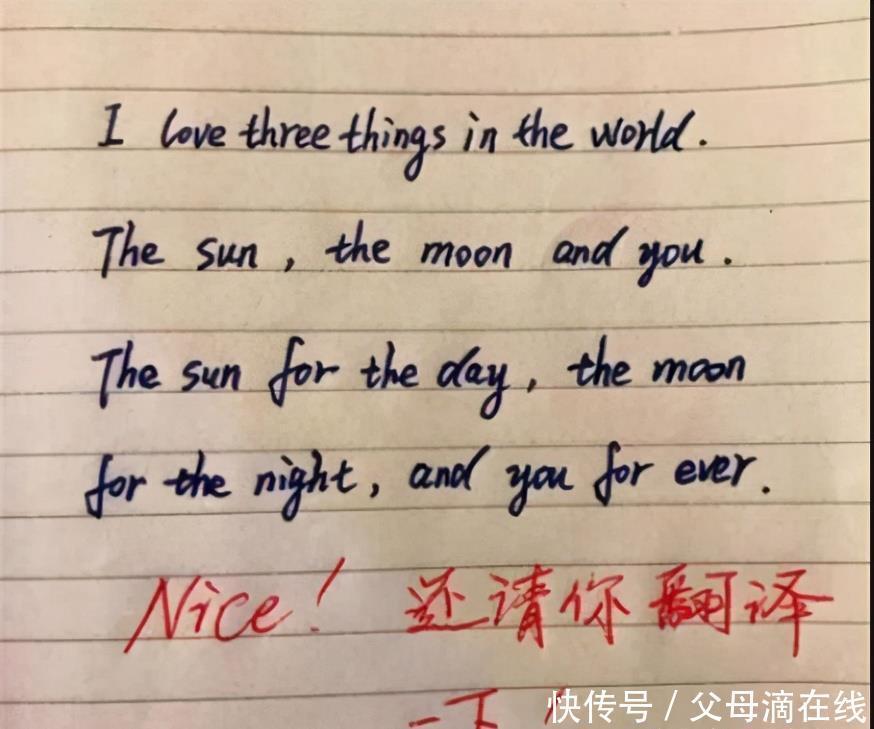 I love three things in the world.
The sun, the moon and you.
The sun for the day, the moon
for the night, and you for ever.
Nice! 还请你翻译
一下
快传号 / 父母滴在线